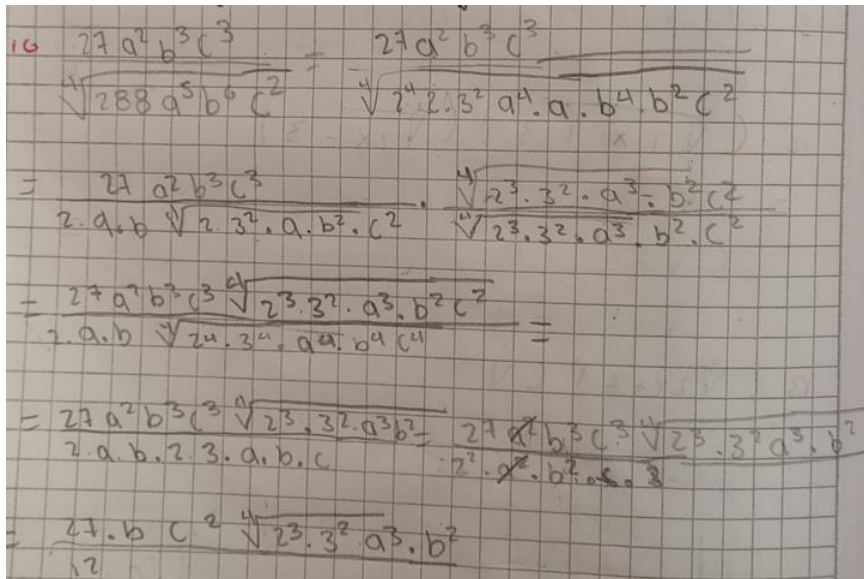 10 27a²b³c³ / ∜(288a⁵b⁶c²) = 27a²b³c³ / ∜(2⁴·2·3²a⁴·a·b⁴·b²c²)
= 27a²b³c³ / 2·a·b ∜(2·3²·a·b²·c²) · ∜(2³·3²·a³·b²c²) / ∜(2³·3²·a³·b²·c²)
= 27a²b³c³ ∜(2³·3²·a³·b²c²) / 2·a·b ∜(2⁴·3⁴·a⁴·b⁴c⁴) =
= 27a²b³c³ ∜(2³·3²·a³b²) / 2·a·b·2·3·a·b·c = 27a²b³c³ ∜(2³·3²a³·b²) / 2²·a²·b²·c·3
= 27·b c² ∜(2³·3²·a³·b²) / 12